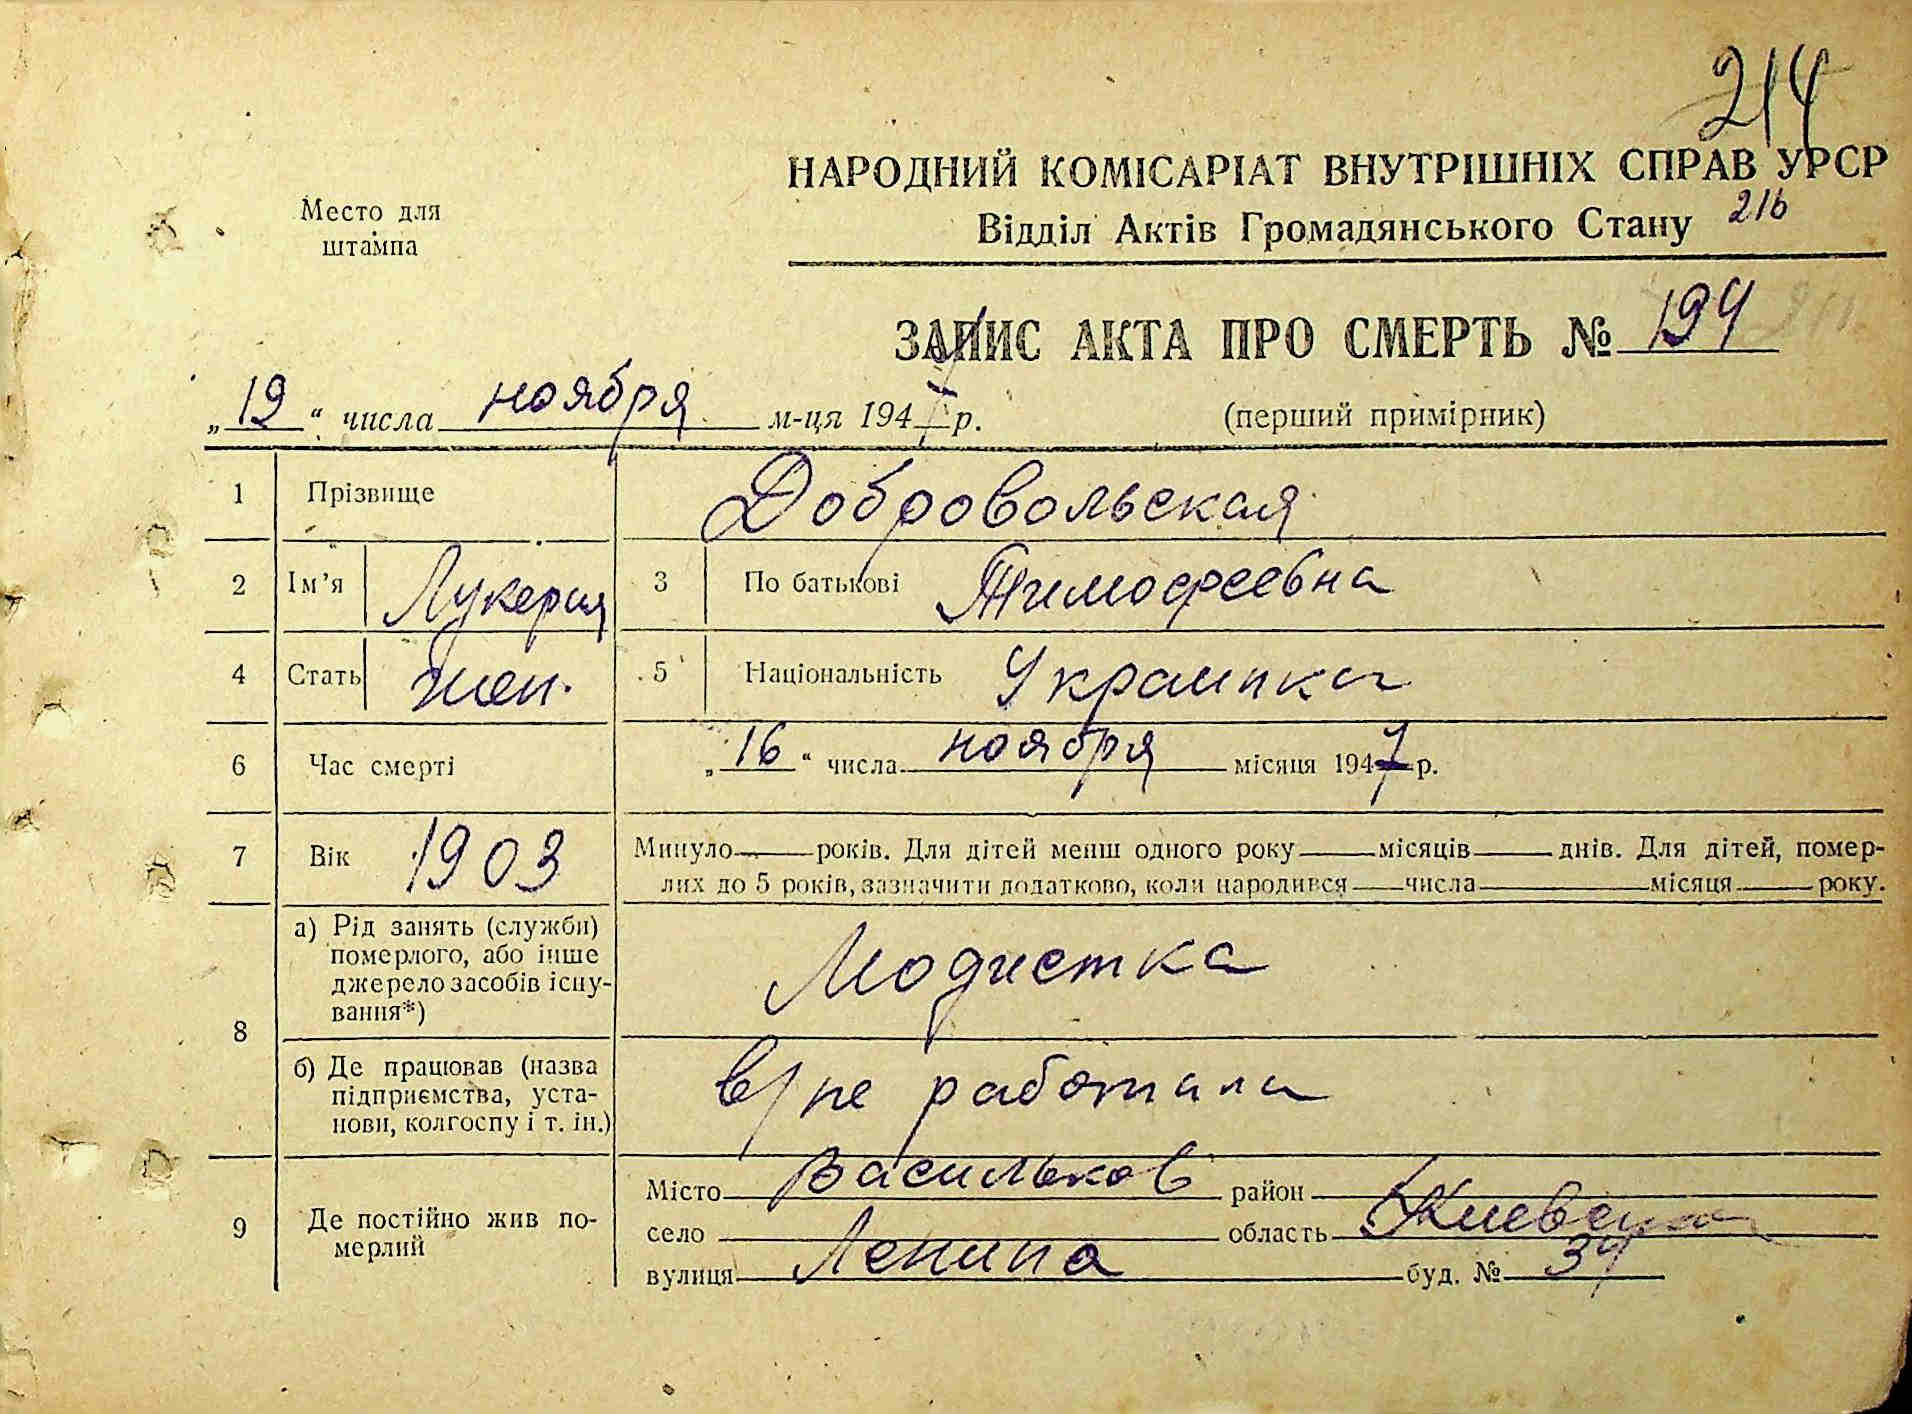 214
НАРОДНИЙ КОМІСАРІАТ ВНУТРІШНІХ СПРАВ УРСР
Место для штампа
Відділ Актів Громадянського Стану 216
ЗАПИС АКТА ПРО СМЕРТЬ № 194
„19“ числа ноября м-ця 1947 р. (перший примірник)
1 Прізвище Добровольская
2 Ім’я Лукерия 3 По батькові Тимофеевна
4 Стать жен. 5 Національність Украинка
6 Час смерті „16“ числа ноября місяця 1947 р.
7 Вік 1903 Минуло років. Для дітей менш одного року місяців днів. Для дітей, помер-
лих до 5 років, зазначити додатково, коли народився числа місяця року.
8 а) Рід занять (служби)
померлого, або інше
джерело засобів існу-
вання*) Модистка
б) Де працював (назва
підприємства, уста-
нови, колгоспу і т. ін.) в/ не работала
9 Де постійно жив по-
мерлий
Місто Васильков район
село область Киевская
вулиця Ленина буд. № 34